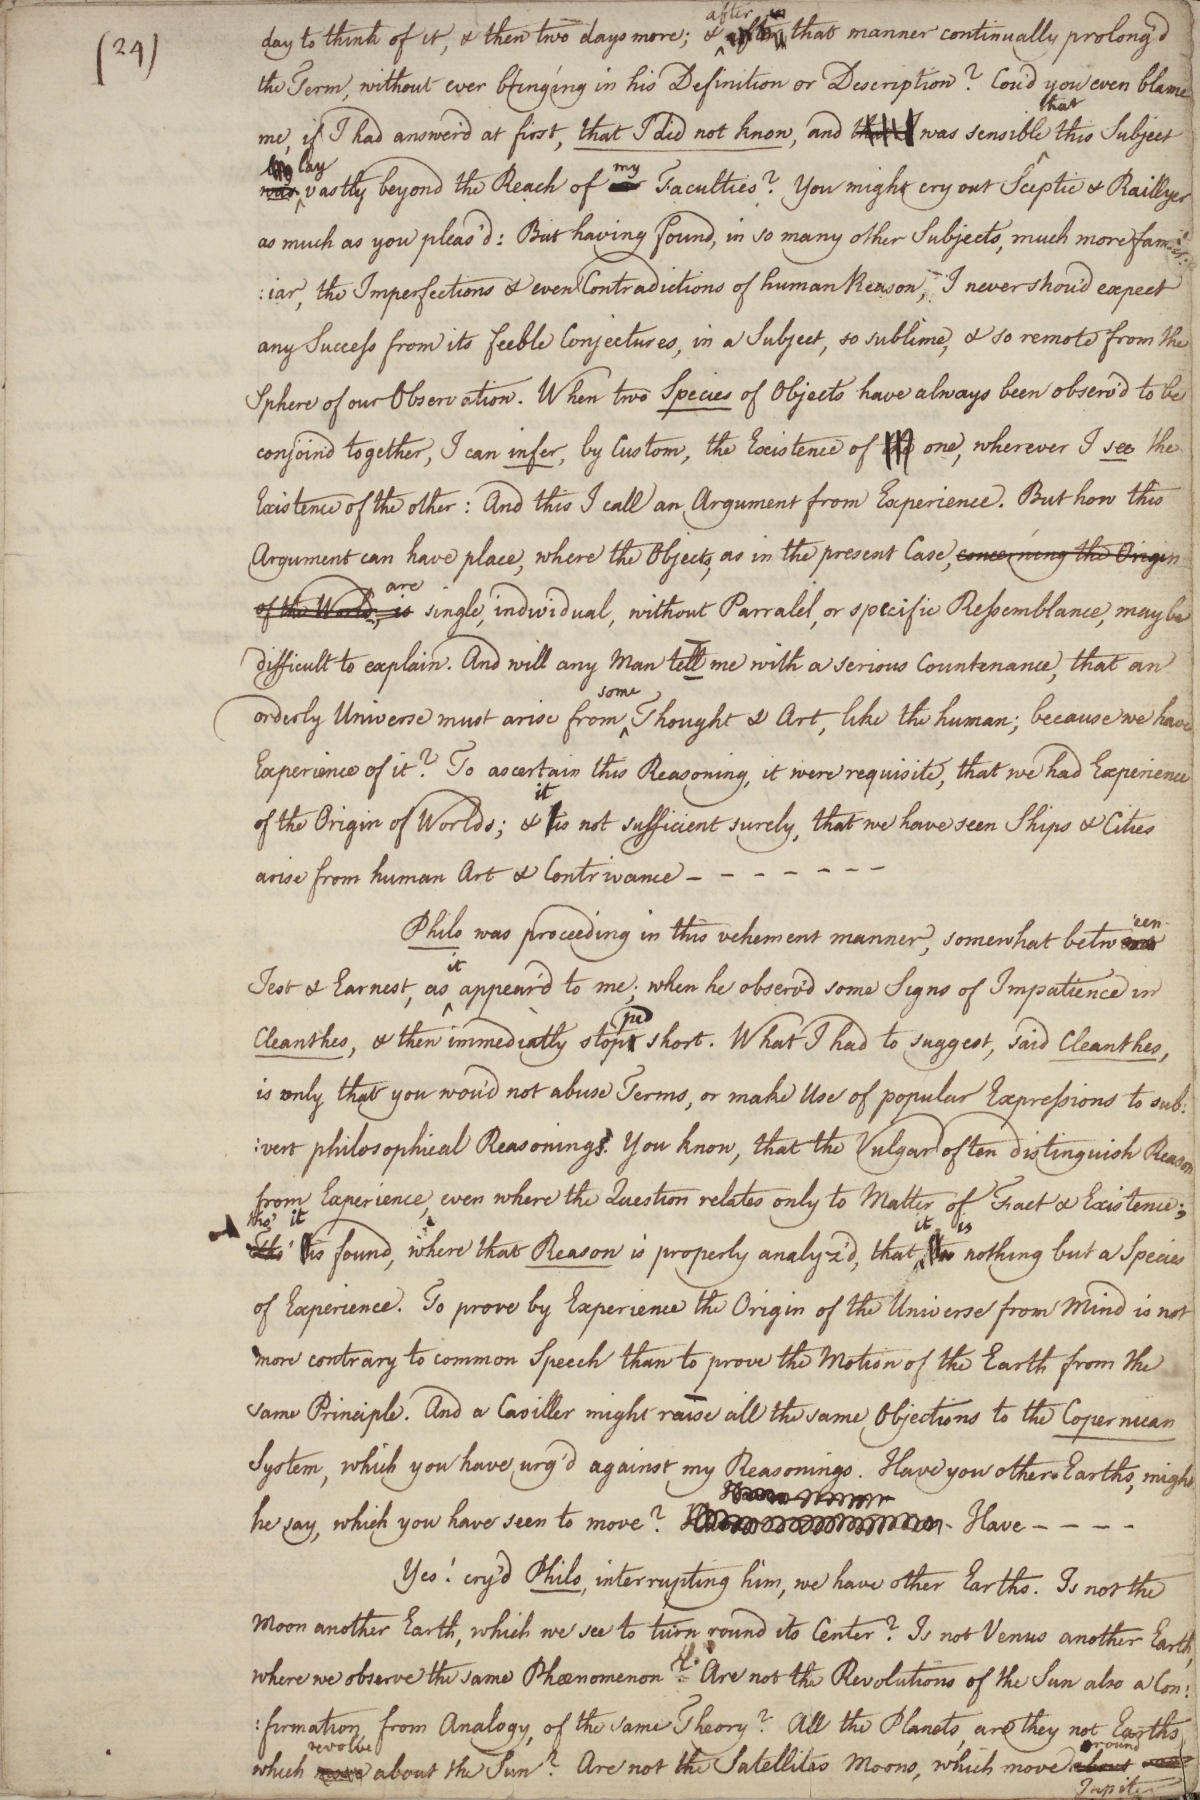 (24)
day to think of it, & then two days more; & after in that manner continually prolong'd
the Term, without ever bringing in his Definition or Description? Cou'd you even blame
me, if I had answer'd at first, that I did not know, and was sensible that this Subject
lay vastly beyond the Reach of my Faculties? You might cry out Sceptic & Raillyer
as much as you pleas'd: But having found, in so many other Subjects, much more famil:
:iar, the Imperfections & even Contradictions of human Reason, I never shou'd expect
any Success from its feeble Conjectures, in a Subject, so sublime, & so remote from the
Sphere of our Observation. When two Species of Objects have always been observ'd to be
conjoind together, I can infer, by Custom, the Existence of one, wherever I see the
Existence of the other: And this I call an Argument from Experience. But how this
Argument can have place, where the Objects, as in the present Case, concerning the Origin
of the World, is are single, individual, without Parralel, or specific Ressemblance, may be
difficult to explain. And will any Man tell me with a serious Countenance, that an
orderly Universe must arise from some Thought & Art, like the human; because we have
Experience of it? To ascertain this Reasoning, it were requisite, that we had Experience
of the Origin of Worlds; & it is not sufficient surely, that we have seen Ships & Cities
arise from human Art & Contrivance - - - - - - -
Philo was proceeding in this vehement manner, somewhat between
Jest & Earnest, as it appear'd to me; when he observ'd some Signs of Impatience in
Cleanthes, & then immediatly stopped short. What I had to suggest, said Cleanthes,
is only that you wou'd not abuse Terms, or make Use of popular Expressions to sub:
:vert philosophical Reasonings. You know, that the Vulgar often distinguish Reason
from Experience, even where the Question relates only to Matter of Fact & Existence;
tho' it is found, where that Reason is properly analyz'd, that it is nothing but a Species
of Experience. To prove by Experience the Origin of the Universe from Mind is not
more contrary to common Speech than to prove the Motion of the Earth from the
same Principle. And a Caviller might raise all the same Objections to the Copernican
System, which you have urg'd against my Reasonings. Have you other Earths, might
he say, which you have seen to move? Have - - - -
Yes! cry'd Philo, interrupting him, we have other Earths. Is not the
Moon another Earth, which we see to turn round its Center? Is not Venus another Earth,
where we observe the same Phænomenon? Are not the Revolutions of the Sun also a Con:
:firmation, from Analogy, of the same Theory? All the Planets, are they not Earths,
which revolve about the Sun? Are not the Satellites Moons, which move around
Jupiter